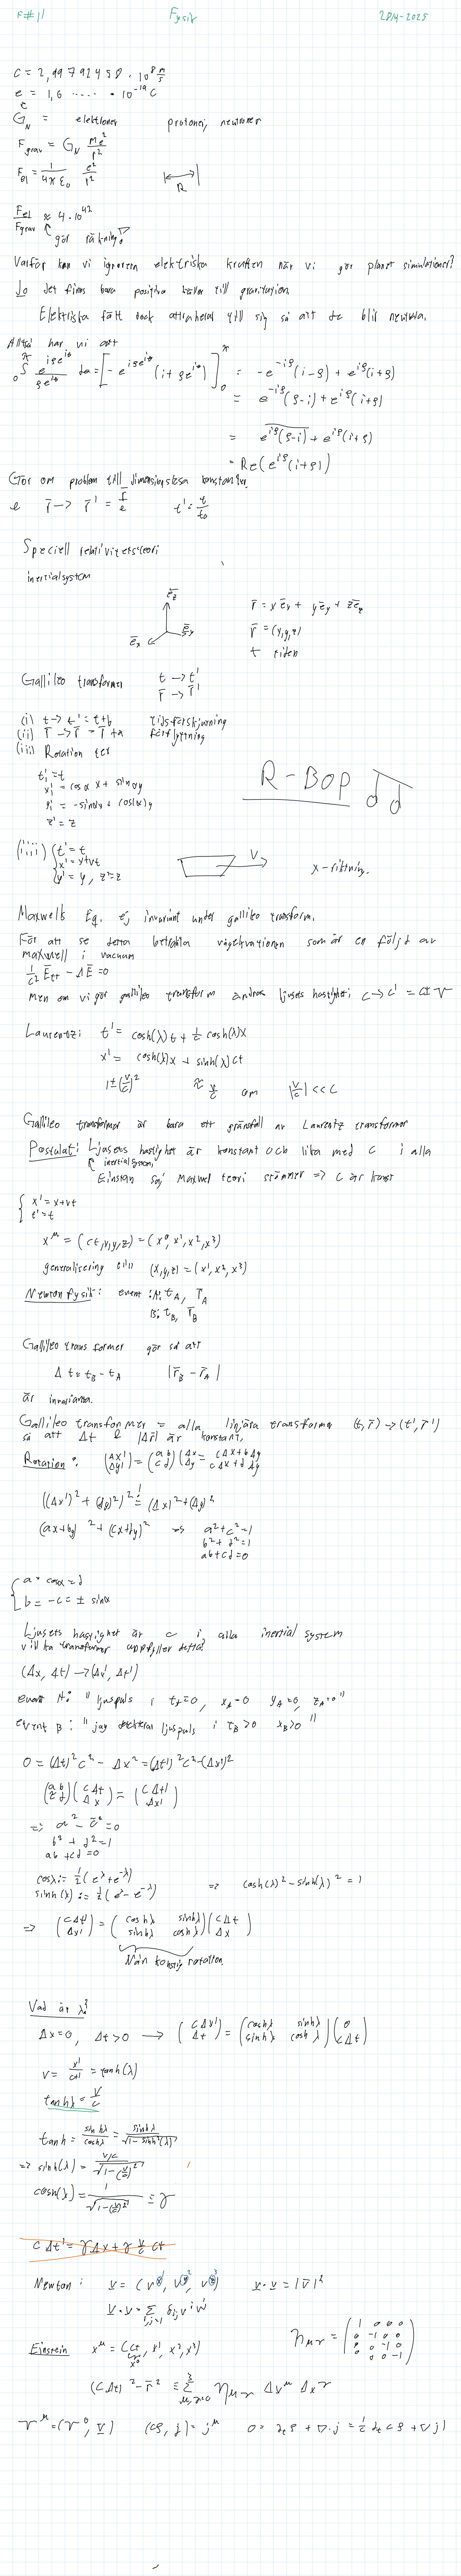 F#11 Fysik 28/4-2025
c = 2,997924580 · 10^8 m/s
e = 1,6 ..... · 10^-19 C
G_N = elektroner protoner, neutroner
F_grav = G_N m_e^2/r^2
F_el = 1/(4πε_0) e^2/r^2
R
F_el/F_grav ≈ 4·10^42
gör räkning!
Varför kan vi ignorera elektriska kraften när vi gör planet simulationer?
Jo det finns bara positiva källor till gravitation.
Elektriska fält dock attraherar till sig så att de blir neutrala.
Alltså har vi att
= e^{-iρ}(ρ-i) + e^{iρ}(i+ρ)
= e^{iρ}(ρ-i) + e^{iρ}(i+ρ)
= Re(e^{iρ}(i+ρ))
Gör om problem till dimensionslösa konstanter.
t' = t/t_0
Speciell relativitetsteori
inertialsystem
e_z
e_x e_y
r = x e_x + y e_y + z e_z
r = (x,y,z)
t tiden
Gallileo transformer t → t'
r → r'
(i) t → t' = t+b tidsförskjutning
(ii) r → r' = r+a förflyttning
(iii) Rotation
t' = t
x' = cosα x + sinα y
y' = -sinα x + cos(α) y
z' = z
R-BOP
(iiii) { t' = t
x' = x+vt
y' = y, z' = z
V
x-riktning.
Maxwells Eq. ej invariant under gallileo transform.
För att se detta betrakta vågekvationen som är en följd av
maxwell i vacuum
1/c^2 E_tt - ΔE = 0
Men om vi gör gallileo transform ändras ljusets hastighet: c → c' = c ± v
Laurentz: t' = cosh(λ)t + 1/c cosh(λ)x
x' = cosh(λ)x + sinh(λ)ct
1±(v/c)^2 ≈ v/c om |v/c| << c
Gallileo transformer är bara ett gränsfall av Laurentz transformer
Postulat: Ljusets hastighet är konstant och lika med c i alla
inertialsystem
Einstein säj Maxwel teori stämmer ⇒ c är konst
{ x' = x+vt
t' = t
x^μ = (ct,x,y,z) = (x^0, x^1, x^2, x^3)
generalisering till (x,y,z) = (x^1, x^2, x^3)
Newton fysik: event: A: t_A, r_A
B: t_B, r_B
Gallileo transformer gör så att
Δt = t_B - t_A |r_B - r_A|
är invarianta.
Gallileo transformer = alla linjära transformer (t,r) → (t',r')
så att Δt & |Δr| är konstant.
Rotation: (Δx' Δy') = (a b c d)(Δx Δy) = aΔx + bΔy cΔx + dΔy
((Δx')^2 + (Δy')^2 != (Δx)^2 + (Δy)^2
(ax+by)^2 + (cx+dy)^2 ⇒ a^2+c^2 = 1
b^2 + d^2 = 1
ab+cd = 0
{ a = cosα = d
b = -c = ± sinα
Ljusets hastighet är c i alla inertial system
vilka transformer uppfyller detta?
(Δx, Δt) → (Δx', Δt')
event A: "ljuspuls i t_A=0, x_A=0 y_A=0, z_A=0"
event B: "jag detekterar ljuspuls i t_B>0 x_B>0"
0 = (Δt)^2 c^2 - Δx^2 = (Δt')^2 c^2 - (Δx')^2
(a b c d)(cΔt Δx) = (cΔt' Δx')
⇒ a^2 - c^2 = 0
b^2 + d^2 = 1
ab + cd = 0
cosλ := 1/2(e^λ + e^-λ)
sinh(λ) := 1/2(e^λ - e^-λ) ⇒ cosh(λ)^2 - sinh(λ)^2 = 1
⇒ (cΔt' Δx') = (coshλ sinhλ sinhλ coshλ)(cΔt Δx)
Nån konstig rotation
Vad är λ?
Δx=0, Δt>0 → (cΔx' Δt') = (coshλ sinhλ sinhλ coshλ)(0 cΔt)
v = x'/ct' = tanh(λ)
tanhλ = v/c
tanh = sinhλ/coshλ = sinhλ/√(1-sinh^2(λ))
⇒ sinh(λ) = (v/c)/√(1-(v/c)^2)
cosh(λ) = 1/√(1-(v/c)^2) ≡ γ
cΔt' = γΔx + γ v/c ct
Newton: v = (v^1, v^2, v^3) v·v = |v|^2
v·v = Σ_{i,j=1} δ_ij v^i v^j
Einstein x^μ = (ct, x^1, x^2, x^3)
x^0
η_μν = (1 0 0 0 0 -1 0 0 0 0 -1 0 0 0 0 -1)
(cΔt)^2 - r^2 = Σ_{μ,ν=0}^3 η_μν Δx^μ Δx^ν
v^μ = (v^0, v) (cρ, j) = j^μ 0 = ∂_t ρ + ∇·j = 1/c ∂_t cρ + ∇j)